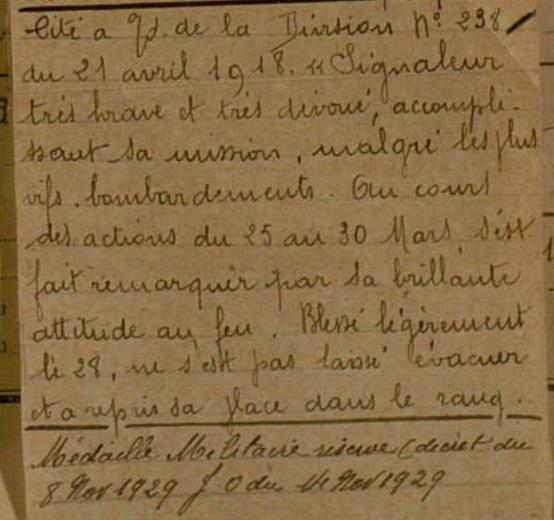 Cité a l'Od. de la Division N° 238
du 21 avril 1918. « Signaleur
très brave et très dévoué, accomplis-
sant sa mission, malgré les plus
vifs bombardements. Au cours
des actions du 25 au 30 Mars s'est
fait remarquer par sa brillante
attitude au feu. Blessé légèrement
le 28, ne s'est pas laissé évacuer
et a repris sa place dans le rang.
Médaille Militaire réserve (décret du
8 Nov 1929 J O du 14 Nov 1929